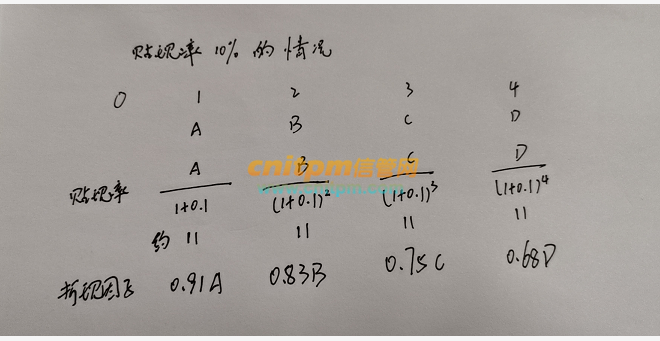 贴现率 10% 的情况
0 1 2 3 4
A B C D
贴现率 A/(1+0.1) B/(1+0.1)² C/(1+0.1)³ D/(1+0.1)⁴
约 11 11 11 11
折现因子 0.91A 0.83B 0.75C 0.68D
cnitpm信管网
www.cnitpm.com